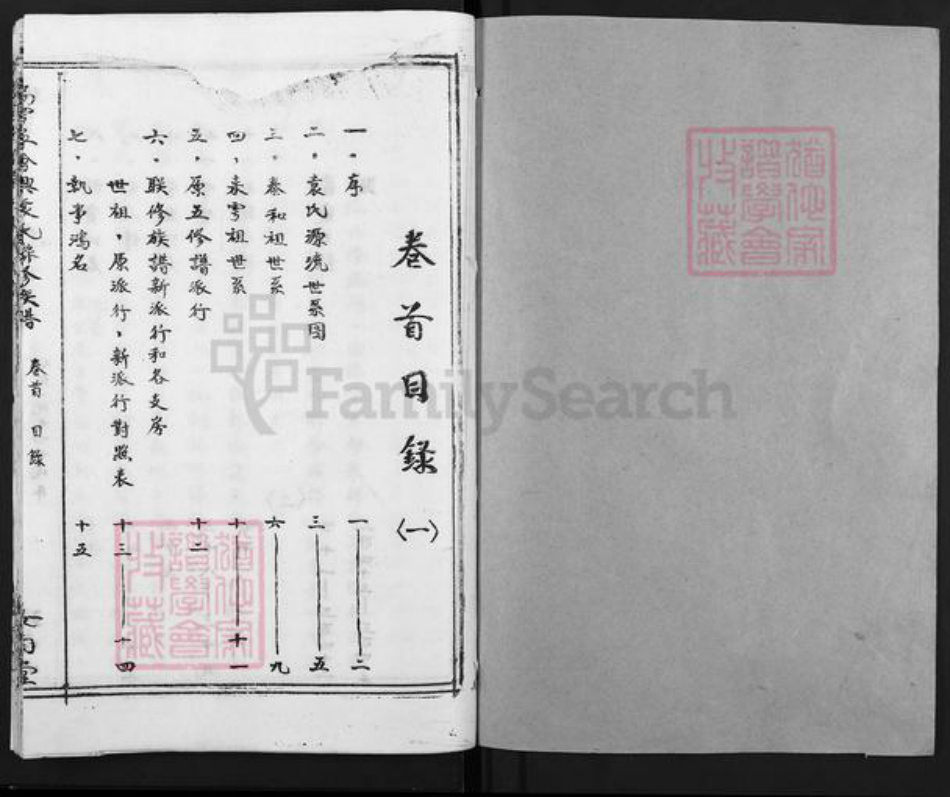 卷首目錄〈一〉
一．序 一——二
二．袁氏源流世系图 三——五
三．泰和祖世系 六——九
四，永雩祖世系 十——十一
五．原五修譜派行 十二
六．联修族譜新派行和各支房
世祖，原派行，新派行對照表 十三——十四
七．執事鴻名 十五
卷首 目錄
FamilySearch
譜學會
收藏
譜學會
收藏